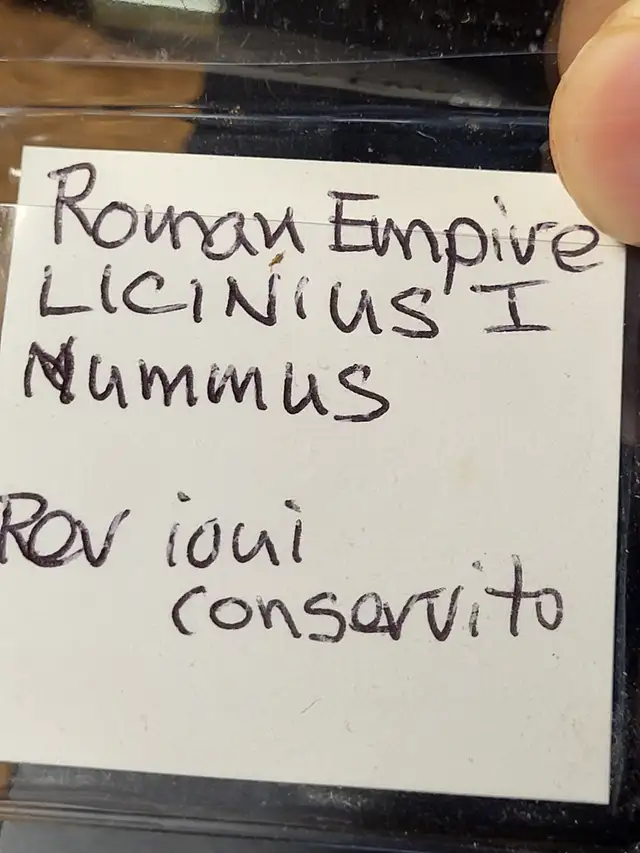 Roman Empire
LICINIUS I
Nummus
Rev ioui
conservito